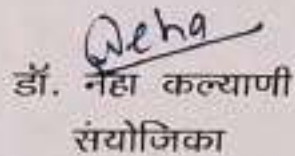 Neha
डॉ. नेहा कल्याणी
संयोजिका